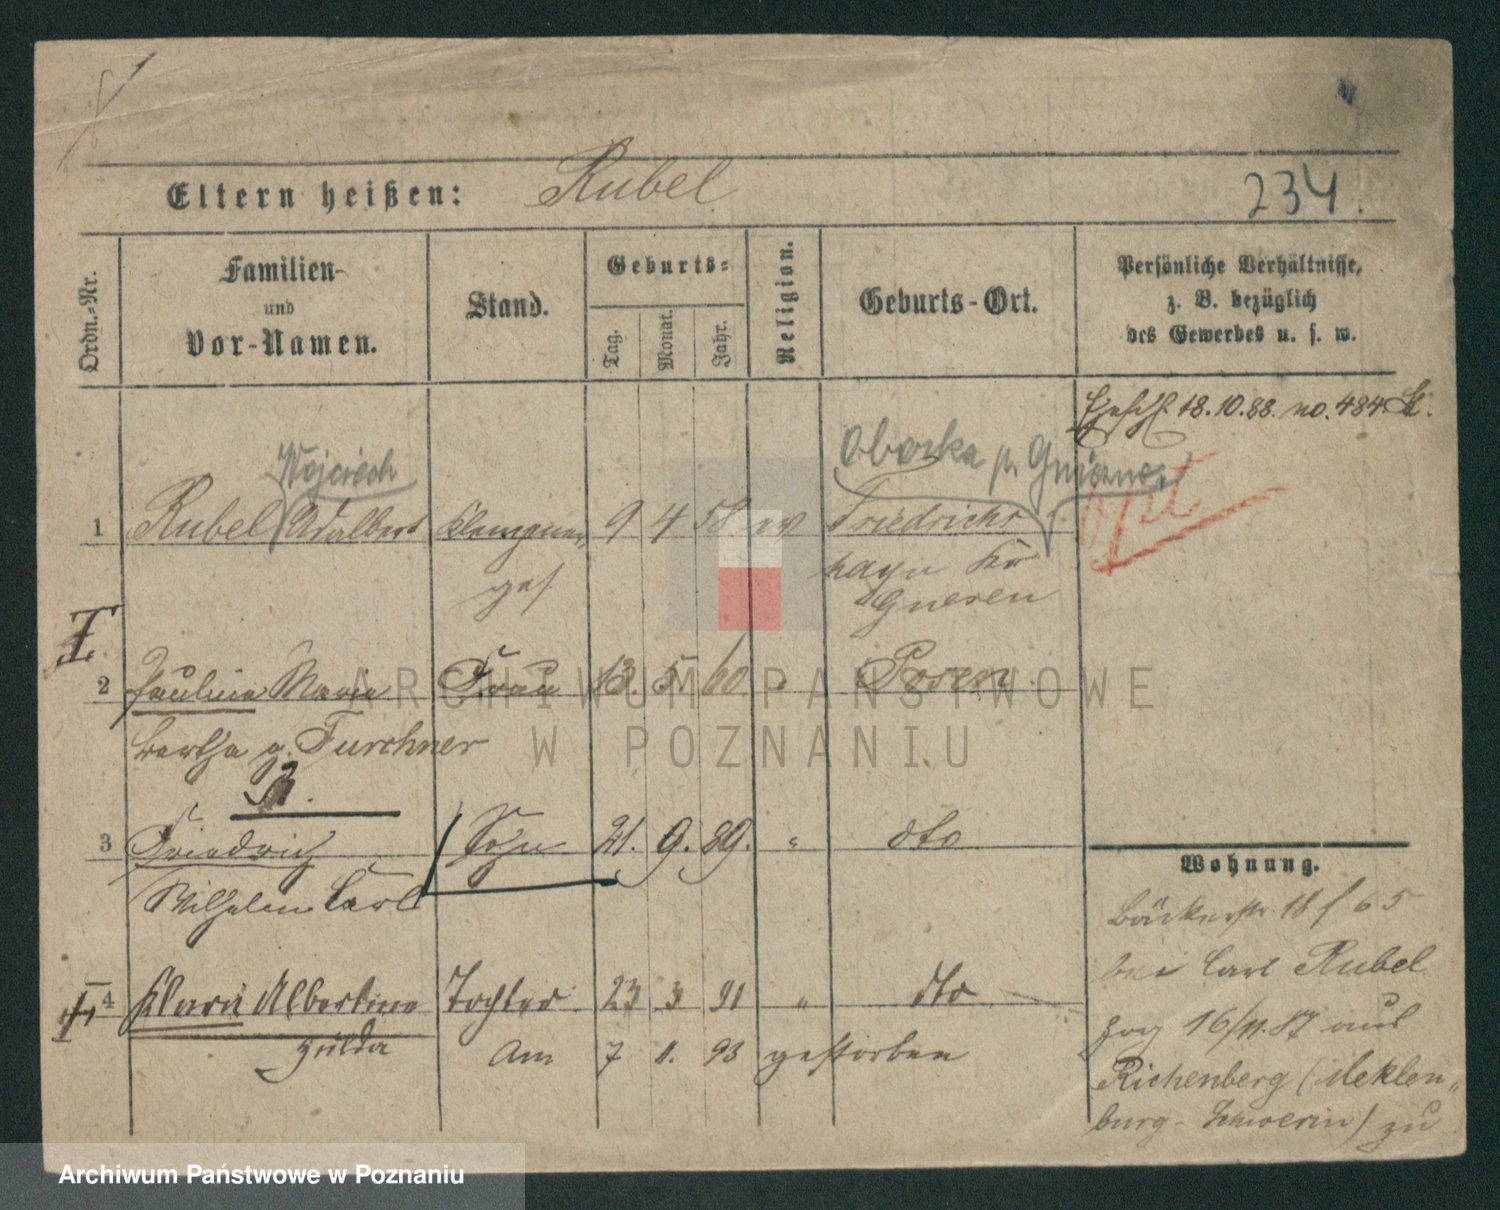 Eltern heißen: Rubel
234.
Ordn.-Nr.
Familien-
und
Vor-Namen.
Stand.
Geburts-
Tag.
Monat.
Jahr.
Religion.
Geburts-Ort.
Persönliche Verhältnisse,
z. B. bezüglich
des Gewerbes u. s. w.
18.10.88. no. 484
Wojciech
Oborka p. Gniezno
1 Rubel Adalbert Klempner 9 4 58 ev Friedrichs
ges. hayn Kr
Gnesen
I
2 Pauline Marie Frau 13. 5. 60 " Posen
Bertha g. Furchner
3 Friedrich Sohn 21. 9. 89. " dto
Wilhelm Carl
4 Klara Albertine Tochter 23 3 91 " dto
Hulda Am 7 11. 93 gestorben
Wohnung.
Bäckerstr. 18 f 65
bei Carl Rubel
zog 16/11.87 aus
Richenberg (Meklen„
burg-Schwerin) zu
ARCHIWUM PAŃSTWOWE
W POZNANIU
Archiwum Państwowe w Poznaniu